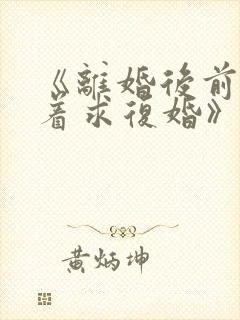 《離婚後前
着求復婚》
黃炳坤